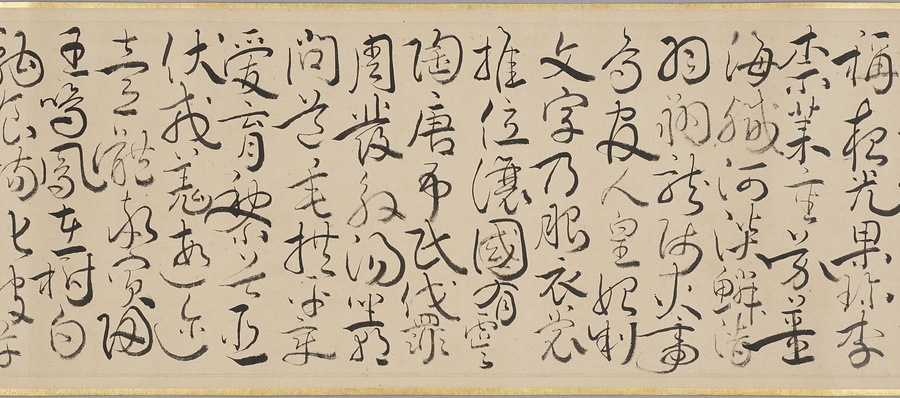 稱夜光果珍李
柰菜重芥薑
海鹹河淡鱗潛
羽翔龍師火帝
鳥官人皇始制
文字乃服衣裳
推位讓國有虞
陶唐弔民伐罪
周發殷湯坐朝
問道垂拱平章
愛育黎首臣
伏戎羌遐邇
壹體率賓歸
王鳴鳳在樹白
駒食場化被草